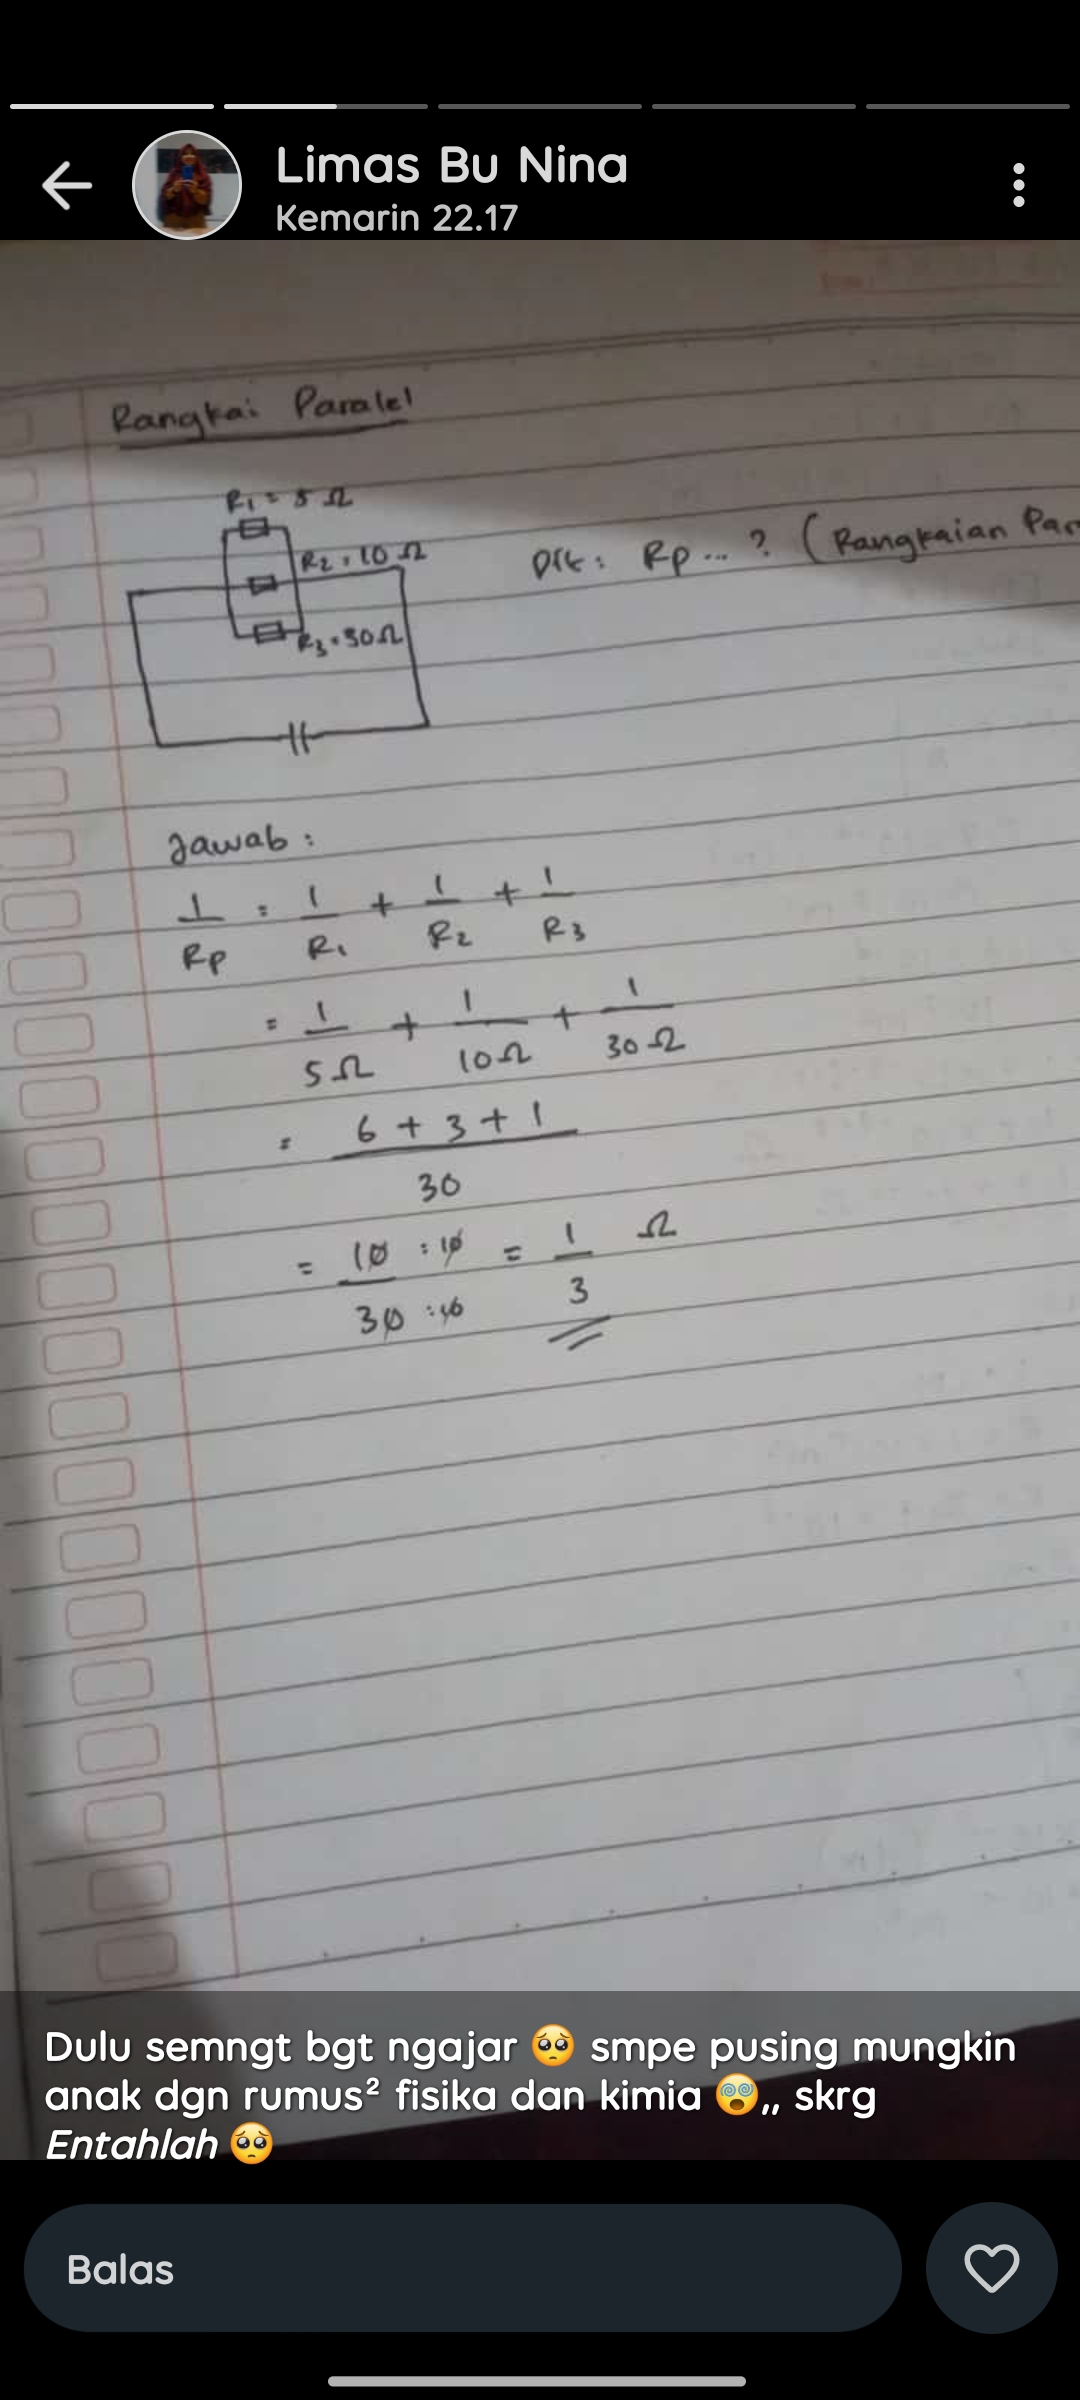 Limas Bu Nina
Kemarin 22.17
Rangkai Paralel
R₁ = 5 Ω
R₂ = 10 Ω
R₃ = 30 Ω
Dit : Rp ... ? (Rangkaian Par
Jawab :
1/Rp = 1/R₁ + 1/R₂ + 1/R₃
= 1/5Ω + 1/10Ω + 1/30Ω
= 6 + 3 + 1 / 30
= 10 : 10 / 30 : 10 = 1/3 Ω
Dulu semngt bgt ngajar 🥺 smpe pusing mungkin
anak dgn rumus² fisika dan kimia 😵‍💫,, skrg
Entahlah 🥺
Balas